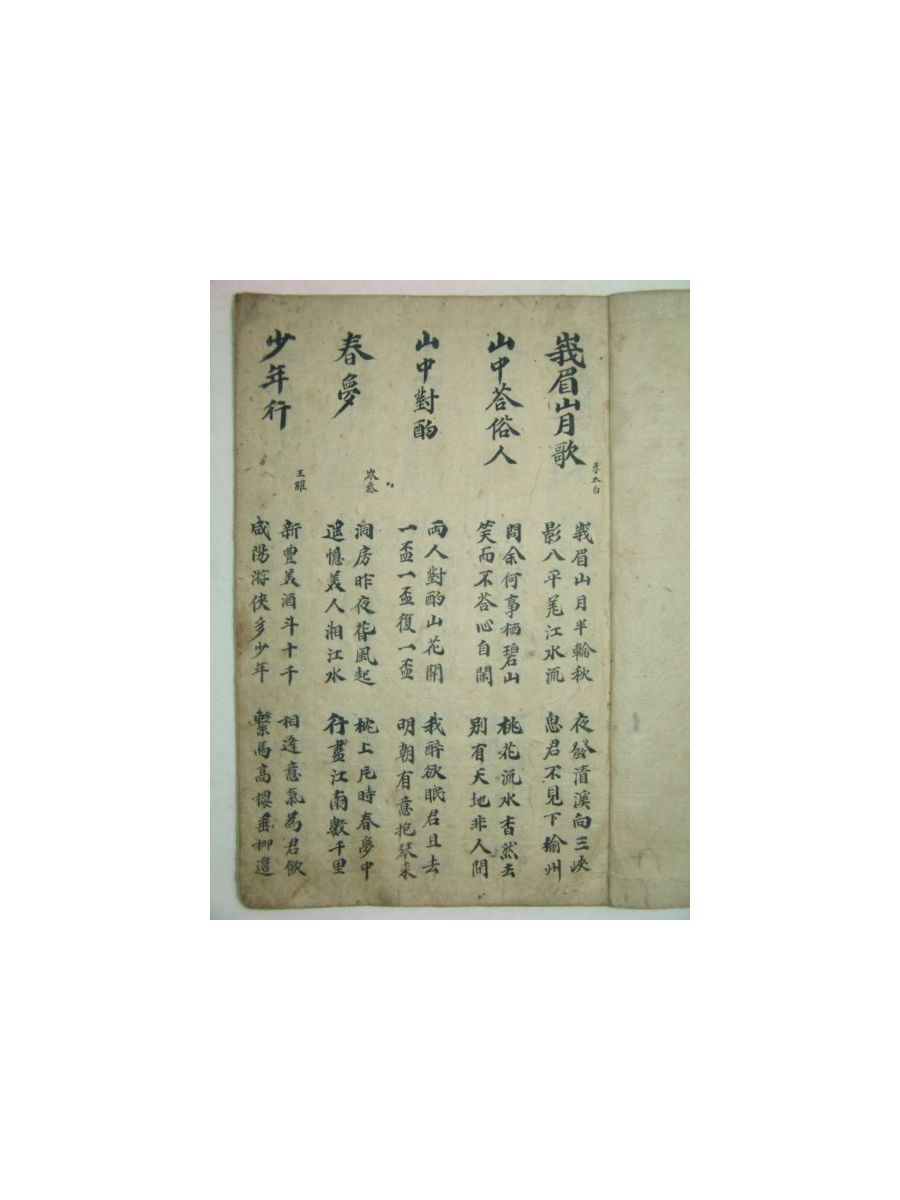 峩眉山月歌
李太白
峩眉山月半輪秋 夜發清溪向三峽
影入平羌江水流 思君不見下渝州
山中荅俗人
問余何事栖碧山 桃花流水杳然去
笑而不荅心自閑 別有天地非人間
山中對酌
兩人對酌山花開 我醉欲眠君且去
一盃一盃復一盃 明朝有意抱琴来
春夢
岑参
洞房昨夜春風起 枕上片時春夢中
遙憶美人湘江水 行盡江南數千里
少年行
王維
新豊美酒斗十千 相逢意氣為君飲
咸陽游俠多少年 繫馬高樓垂柳邊